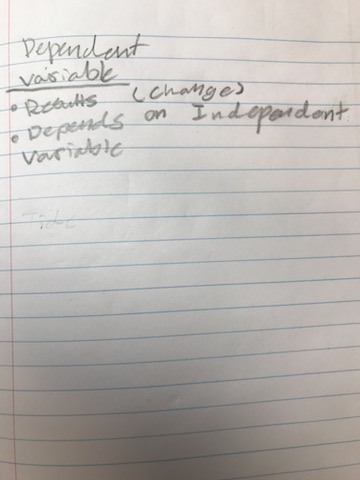 Dependent
variable
• Results (change)
• Depends on Independent
variable